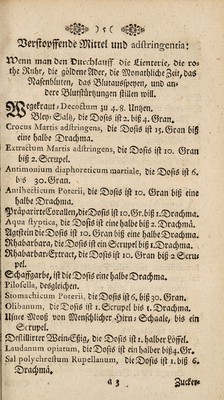 ) 5 (
Verstopffende Mittel und adstringentia:
Wenn man den Durchlauff die Lienterie, die ro-
the Ruhr, die goldene Ader, die Monathliche Zeit, das
Nasenbluten, das Blutausspeyen, und an-
dere Blutstürtzungen stillen will.
Wegekraut: Decoctum zu 4. 8. Untzen.
Bley-Saltz, die Dosis ist 2. biß 4. Gran.
Crocus Martis adstringens, die Dosis ist 15. Gran biß
eine halbe Drachma.
Extractum Martis adstringens, die Dosis ist 10. Gran
biß 2. Scrupel.
Antimonium diaphoreticum martiale, die Dosis ist 6.
bis 30. Gran.
Antihecticum Poterii, die Dosis ist 10. Gran biß eine
halbe Drachma.
Präparirte Corallen, die Dosis ist 10. Gr. biß 1. Drachma.
Aqua styptica, die Dosis ist eine halbe biß 2. Drachmâ.
Agtstein die Dosis ist 10. Gran biß eine halbe Drachma.
Rhabarbara, die Dosis ist ein Scrupel biß 1. Drachma.
Rhabarbar-Extract, die Dosis ist 10. Gran biß 2 Scru-
pel.
Schaffgarbe, ist die Dosis eine halbe Drachma.
Pilosella, desgleichen.
Stomachicum Poterii, die Dosis ist 6. biß 30. Gran.
Olibanum, die Dosis ist 1. Scrupel bis 1. Drachma.
Usnee Mooß von Menschlicher Hirn-Schaale, bis ein
Scrupel.
Destillirter Wein-Eßig, die Dosis ist 1. halber Löffel.
Laudanum opiatum, die Dosis ist ein halber biß 4. Gr.
Sal polychrestum Rupellanum, die Dosis ist 1. biß 6.
Drachmâ,
a 3 Zucker-